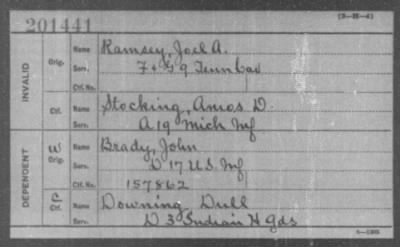 (3-H-4)
201441
INVALID
Orig.
Name Ramsey, Joel A.
Serv. F + G 9 Tenn Cav
Ctf. No.
Ctf.
Name Stocking, Amos D.
Serv. A 19 Mich Inf
DEPENDENT
W Orig.
Name Brady, John
Serv. D 17 U.S. Inf
Ctf. No. 157862
C Ctf.
Name Downing Dull
Serv. D 3 Indian H Gds